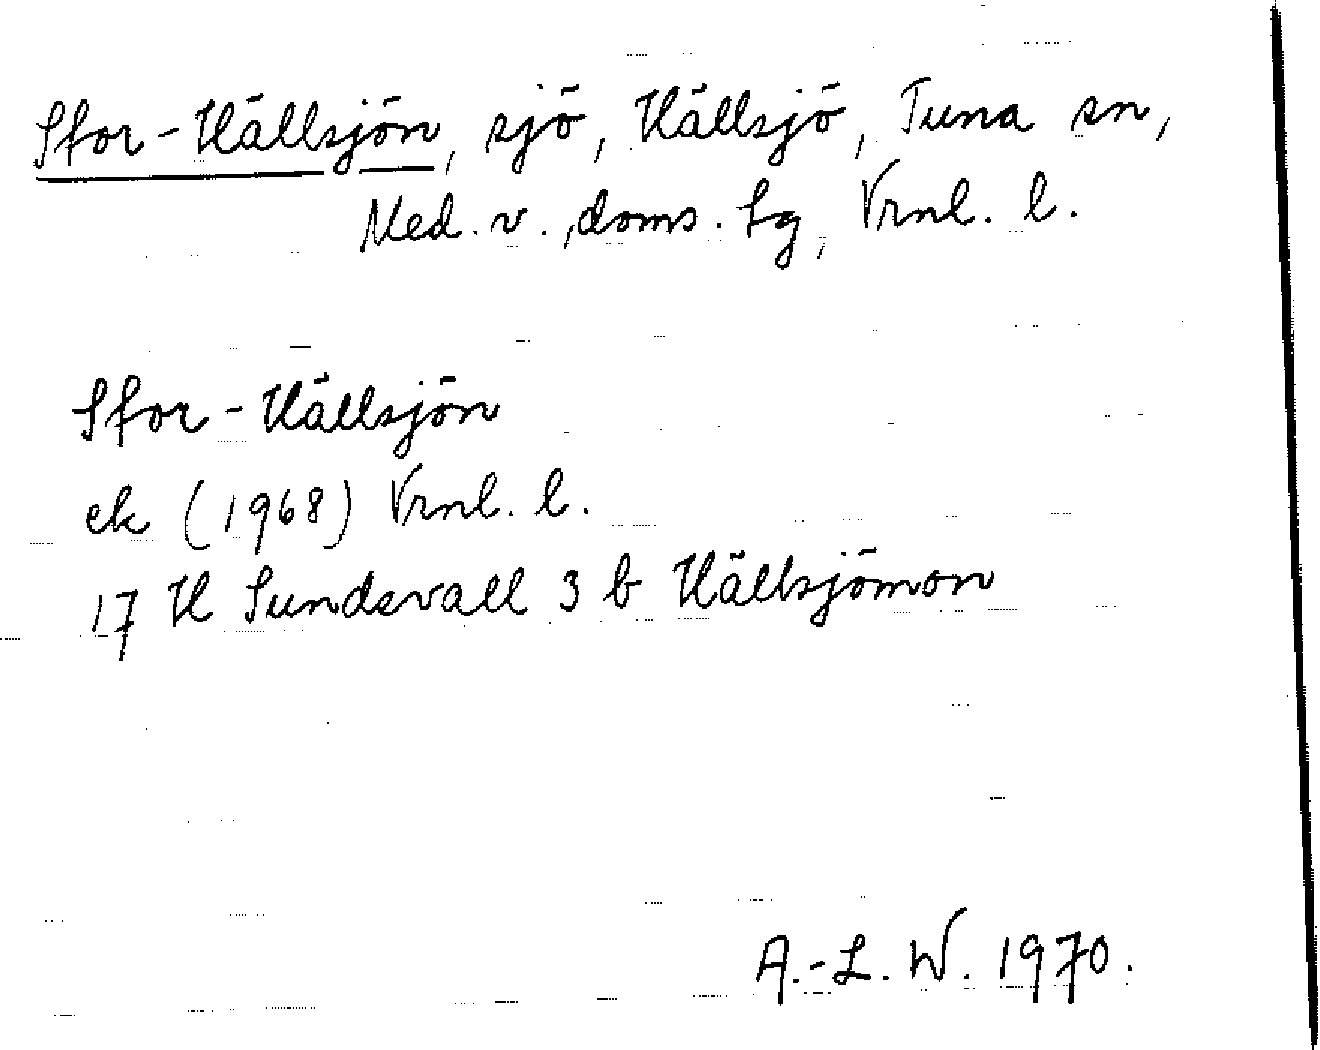 Stor-Hällsjön, sjö, Hällsjö, Tuna sn,
Med. v., doms. tg, Vrnl. l.
Stor-Hällsjön
ek (1968) Vrnl. l.
17 H Sundsvall 3 b Hällsjömon
A.-L. W. 1970.